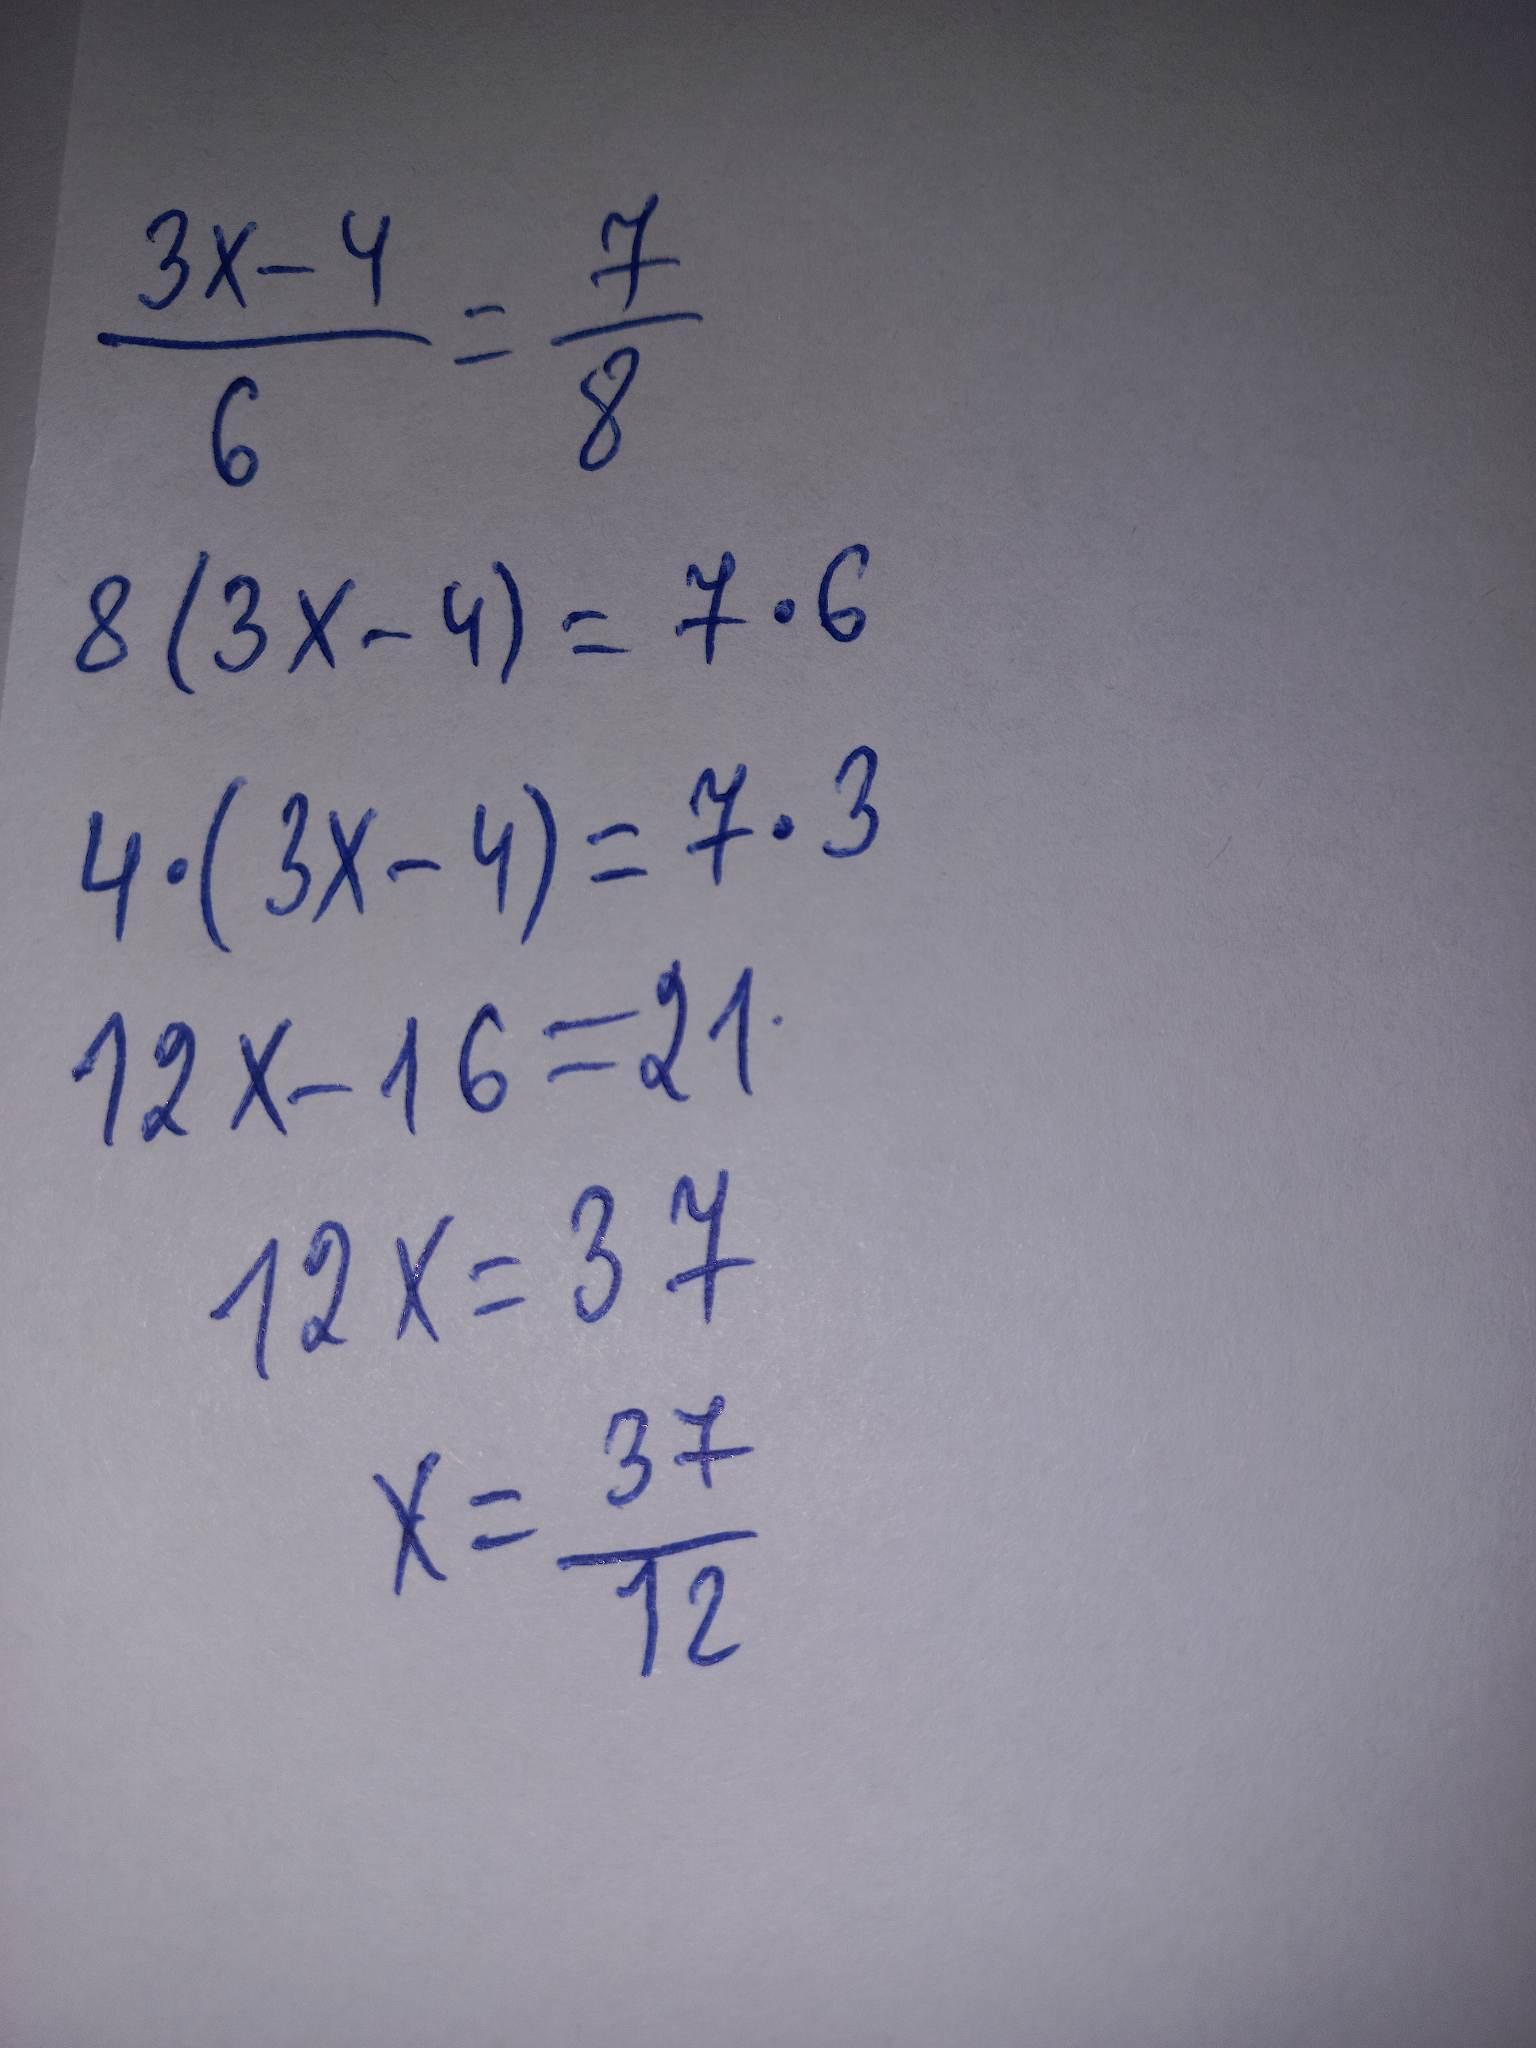 3x-4/6 = 7/8
8(3x-4) = 7·6
4·(3x-4) = 7·3
12x-16=21
12x=37
x=37/12